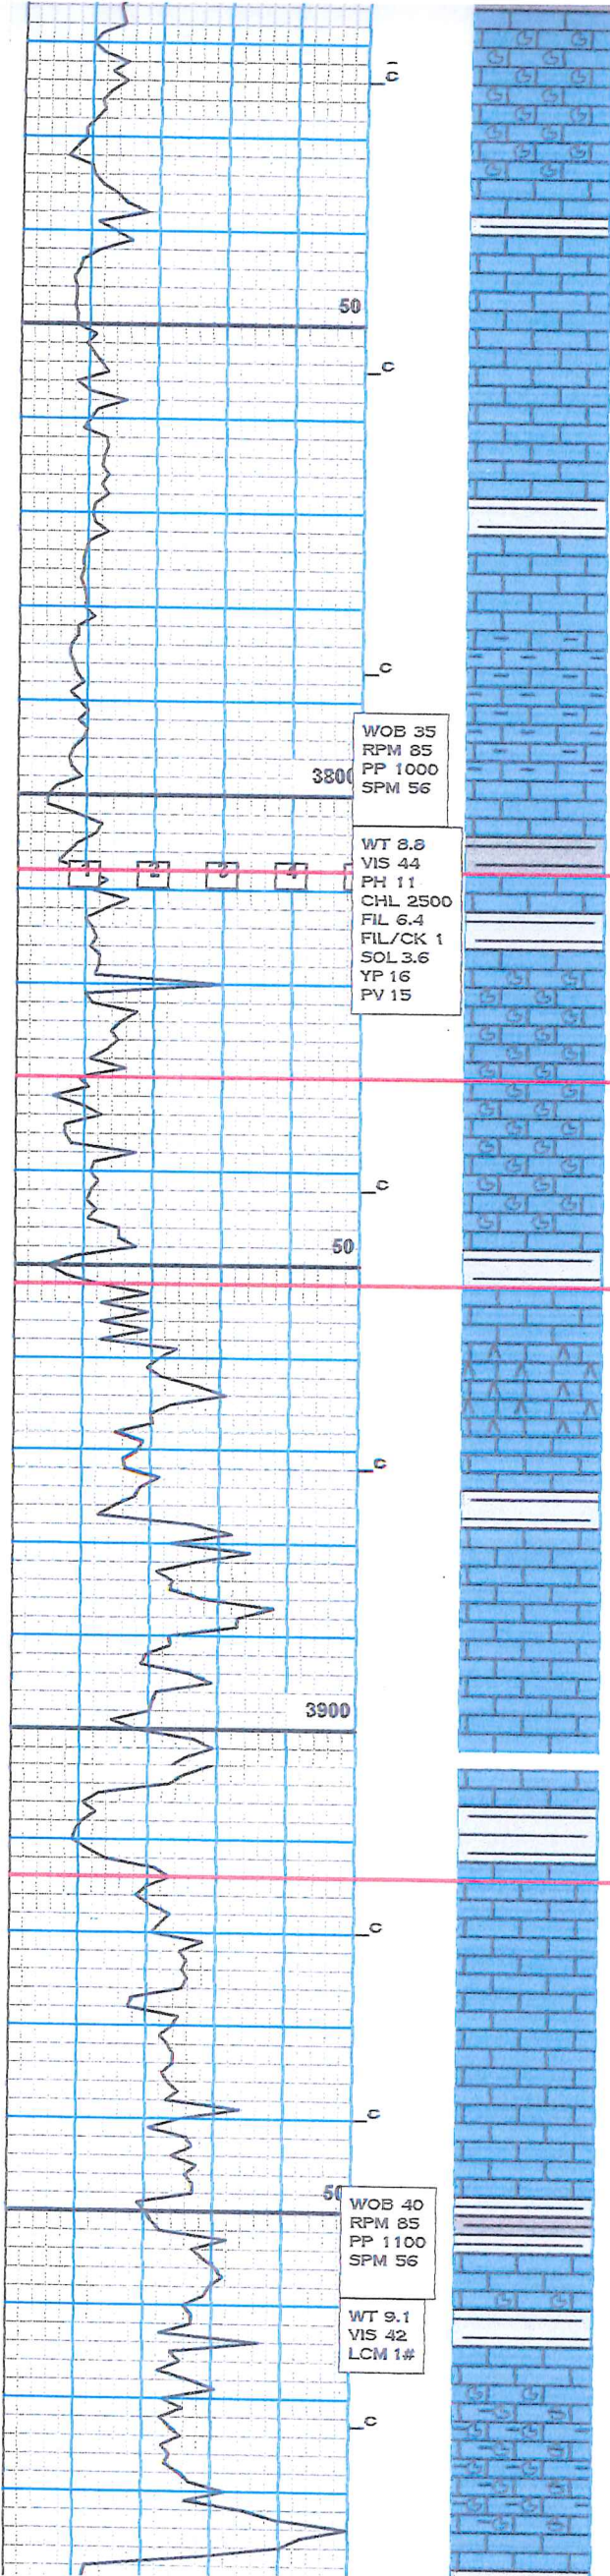 C
50
C
C
WOB 35
RPM 85
PP 1000
SPM 56
3800
WT 8.8
VIS 44
PH 11
CHL 2500
FIL 6.4
FIL/CK 1
SOL 3.6
YP 16
PV 15
1 2 3 4
C
50
C
3900
C
C
50
WOB 40
RPM 85
PP 1100
SPM 56
WT 9.1
VIS 42
LCM 1#
C